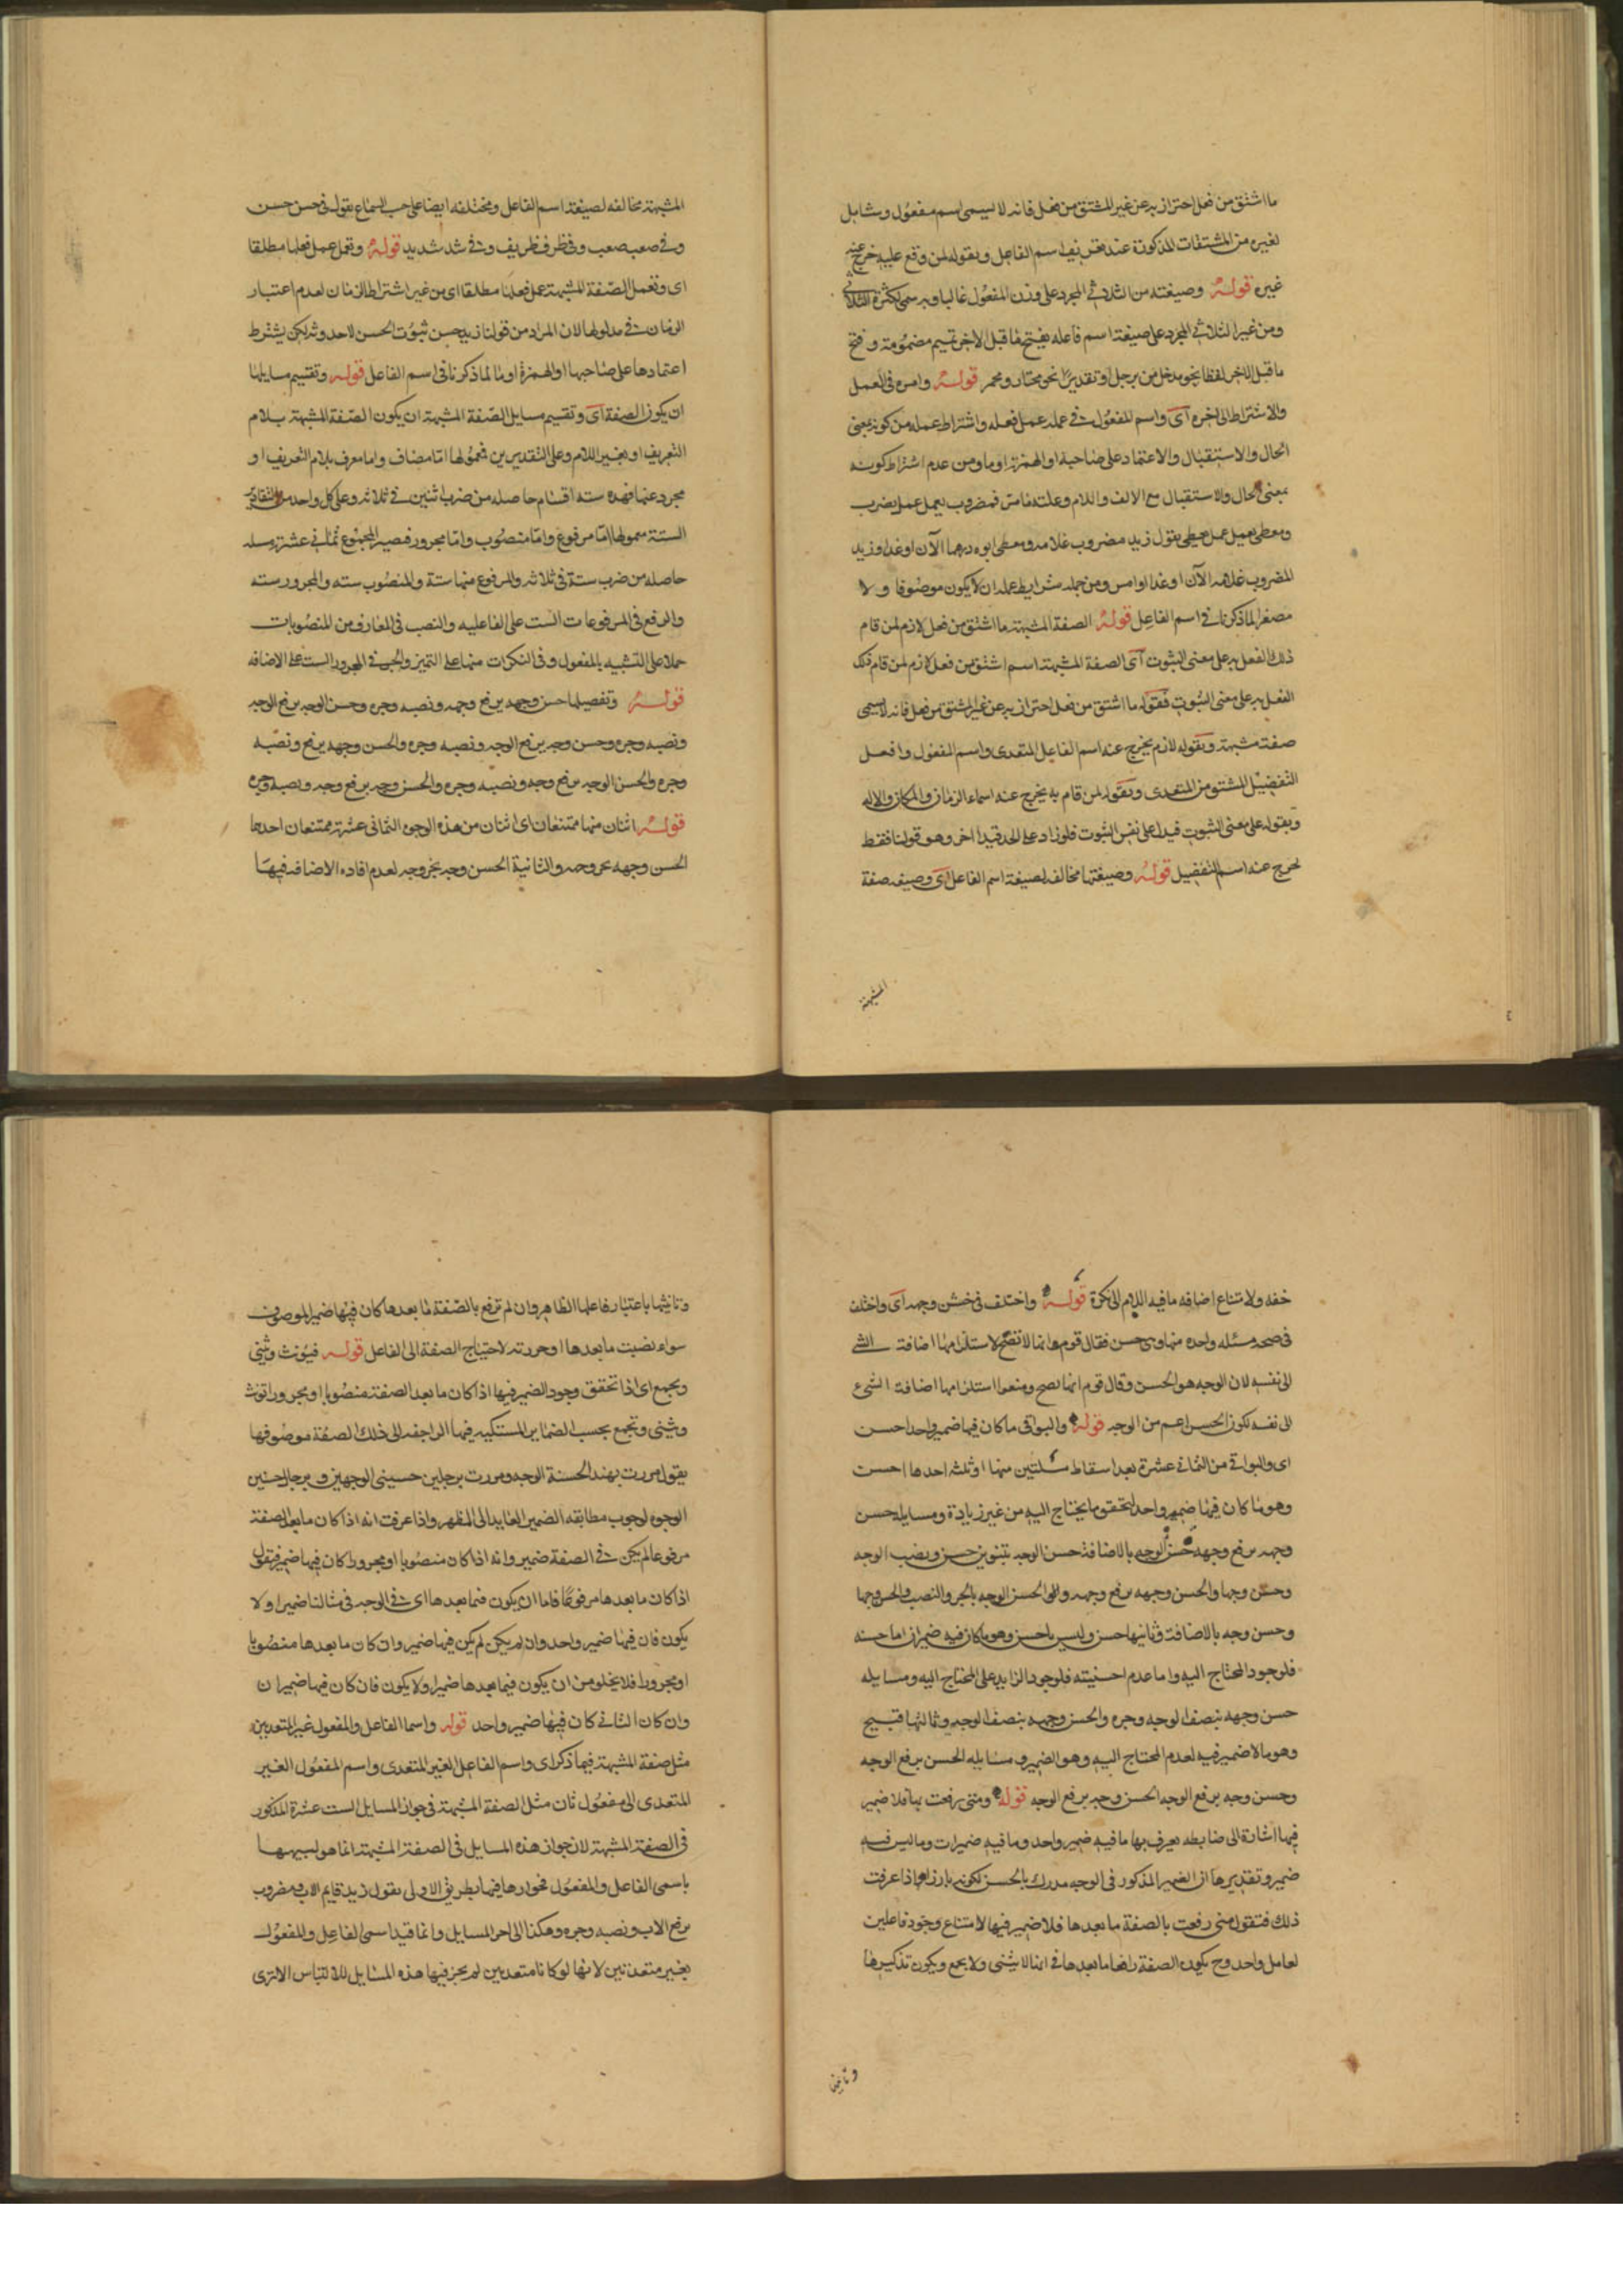 ما اشتق من فعل احتراز به عن غير المشتق من فعل فانه لا يسمى اسم مفعول وشامل
لغيره من المشتقات المذكورة عند تعريف اسم الفاعل وبقوله لمن وقع عليه خرج عنه
غيره قوله وصيغته من الثلاثي المجرد على وزن المفعول غالبا وبه سمى لكثرة الثلاثي
ومن غير الثلاثي المجرد على صيغة اسم فاعله بفتح ما قبل الاخر بميم مضمومة وفتح
ما قبل الاخر لفظا نحو مدخل من يدخل او تقديرا نحو مختار ومحمر قوله وامره في العمل
والاشتراط الى اخره اى واسم المفعول في عمله عمل فعله واشتراط عمله من كونه بمعنى
الحال والاستقبال والاعتماد على صاحبه او الهمزة او ما ومن عدم اشتراط كونه
بمعنى الحال والاستقبال مع الالف واللام وعلته ما مر فمضروب يعمل عمل يضرب
ومعطى يعمل عمل يعطى يقول زيد مضروب غلامه ومعطى ابوه درهما الآن او غدا وزيد
المضروب غلامه الآن او غدا او امس ومن جملة شرايط عمله ان لا يكون موصوفا ولا
مصغرا لما ذكرنا في اسم الفاعل قوله الصفة المشبهة ما اشتق من فعل لازم لمن قام
ذلك الفعل به على معنى الثبوت آى الصفة المشبهة اسم اشتق من فعل لازم لمن قام ذلك
الفعل به على معنى الثبوت فقوله ما اشتق من فعل احتراز به عن غير المشتق من فعل فانه لا يسمى
صفة مشبهة وبقوله لازم يخرج عنه اسم الفاعل المتعدى واسم المفعول وافعل
التفضيل المشتق من المتعدى وبقوله لمن قام به يخرج عنه اسماء الزمان والمكان والاله
وبقوله على معنى الثبوت فيدل على نفس الثبوت فلو زاد على الحد قيدا اخر وهو قولنا فقط
لخرج عنه اسم التفضيل قوله وصيغتها مخالفه لصيغة اسم الفاعل اى وصيغه صفة
المشبهة
المشبهة مخالفه لصيغة اسم الفاعل ومختلفه ايضا على حسب السماع يقول في حسن حسن
وفي صعب صعب وفي ظرف ظريف وفي شد شديد قوله وتعمل عمل فعلها مطلقا
اى وتعمل الصفة المشبهة عمل فعلها مطلقا اى من غير اشتراط الزمان لعدم اعتبار
الزمان في مدلولها لان المراد من قولنا زيد حسن ثبوت الحسن لا حدوثه لكن يشترط
اعتمادها على صاحبها او الهمزة او ما لما ذكرنا في اسم الفاعل قوله وتقسيم مسايلها
ان يكون الصفة آى وتقسيم مسايل الصفة المشبهة ان يكون الصفة المشبهة بلام
التعريف او بغير اللام وعلى التقديرين فمعمولها اما مضاف واما معرف بلام التعريف او
مجرد عنها فهذه ستة اقسام حاصله من ضرب اثنين في ثلاثة وعلى كل واحد من التقادير
الستة معمولها اما مرفوع واما منصوب واما مجرور فصير المجموع ثمانى عشرة مسله
حاصله من ضرب ستة في ثلاثة والمرفوع منها ستة والمنصوب سته والمجرور سته
والرفع في المرفوعات الست على الفاعليه والنصب في المعارف من المنصوبات
حملا على التشبيه بالمفعول وفي النكرات منها على التميز والجر في المجرور الست على الاضافه
قوله وتفصيلها حسن وجهه برفع وجهه ونصبه وجره وحسن الوجه برفع الوجه
ونصبه وجره وحسن وجه برفع الوجه ونصبه وجره والحسن وجهه برفع ونصبه
وجره والحسن الوجه برفع وجه ونصبه وجره والحسن وجه برفع وجه ونصبه وجره
قوله اثنان منها ممتنعان اى اثنان من هذه الوجوه الثمانى عشرة ممتنعان احدها
الحسن وجهه بجر وجهه والثانية الحسن وجه بجر وجه لعدم افاده الاضافه فيها
خفه ولامتناع اضافه ما فيه اللام الى نكرة قوله واختلف في حسن وجهه آى واختلف
في صحه مسئله واحده منها وهي حسن فقال قوم انها لا تصح لاستلزامها اضافة الشي
الى نفسه لان الوجه هو الحسن وقال قوم انها تصح ومنعوا استلزامها اضافة الشئ
الى نفسه لكون الحسن اعم من الوجه قوله والبواقى ما كان فيها ضمير واحد احسن
اى والبواقى من الثمانى عشرة بعد اسقاط مسلتين منها او ثلثه احدها احسن
وهو ما كان فيها ضمير واحد لتحقق ما يحتاج اليه من غير زيادة ومسايله حسن
وجهه برفع وجهه حسن الوجه بالاضافة حسن الوجه بتنوين حسن ونصب الوجه
وحسن وجها والحسن وجهه برفع وجهه والحسن الوجه بالجر والنصب والحسن وجها
وحسن وجه بالاضافة وثانيها حسن وليس باحسن وهو ما كان فيه ضميران اما حسنه
فلوجود المحتاج اليه واما عدم احسنيته فلوجود الزايد على المحتاج اليه ومسايله
حسن وجهه بنصب الوجه وجره والحسن وجهه بنصب الوجه وثالثها قبيح
وهو ما لا ضمير فيه لعدم المحتاج اليه وهو الضمير ومسايله الحسن برفع الوجه
وحسن وجه برفع الوجه الحسن وجه برفع الوجه قوله ومتى رفعت بها فلا ضمير
فيها اشارة الى ضابطه يعرف بها ما فيه ضمير واحد وما فيه ضميرات وما ليس فيه
ضمير وتقديرها ان الضمير المذكور في الوجه مدرك بالحسن لكونه بارزا واذا عرفت
ذلك فتقول متى رفعت بالصفة ما بعدها فلا ضمير فيها لامتناع وجود فاعلين
لعامل واحد وح يكون الصفة رافعا ما بعدها في انها لا يثنى ولا يجمع ويكون تذكيرها
وتانيثها
وتانيثها باعتبار فاعلها الظاهر وان لم ترفع بالصفة ما بعدها كان فيها ضمير الموصوف
سواء نصبت ما بعدها او جررته لاحتياج الصفة الى الفاعل قوله فيؤنث ويثنى
ويجمع اى اذا تحقق وجود الضمير فيها اذا كان ما بعد الصفة منصوبا او مجرورا تونث
ويثنى وتجمع بحسب الضماير المستكنه فيها الراجعه الى ذلك الصفة موصوفها
يقول مررت بهند الحسنة الوجه ومررت برجلين حسينى الوجهين وبرجال حسنين
الوجوه لوجوب مطابقه الضمير العايد الى المظهر واذا عرفت انه اذا كان ما بعد الصفة
مرفوعا لم يكن في الصفة ضمير وانه اذا كان منصوبا او مجرورا كان فيها ضمير فتقول
اذا كان ما بعدها مرفوعا فاما ان يكون فيما بعدها اى في الوجه في مثالنا ضميرا ولا
يكون فان فيها ضمير واحد وان لم يكن لم يكن فيها ضمير وان كان ما بعدها منصوبا
او مجرورا فلا يخلو من ان يكون فيما بعدها ضميرا ولا يكون فان كان فيها ضميران
وان كان الثاني كان فيها ضمير واحد قوله واسما الفاعل والمفعول غير المتعديين
مثل صفة المشبهة فيما ذكر اى واسم الفاعل الغير المتعدى واسم المفعول الغير
المتعدى الى مفعول ثان مثل الصفة المشبهة في جواز المسايل الست عشرة المذكور
في الصفة المشبهة لان جواز هذه المسايل في الصفة المشبهة انما هو لشبهها
باسمى الفاعل والمفعول فجوازها فيها بطريق الاولى يقول زيد قايم الاب ومضروب
برفع الاب ونصبه وجره وهكذا الى اخر المسايل وانما قيد اسمى الفاعل والمفعول
بغير متعديين لانها لو كانا متعديين لم يجز فيها هذه المسايل للالتباس الا ترى